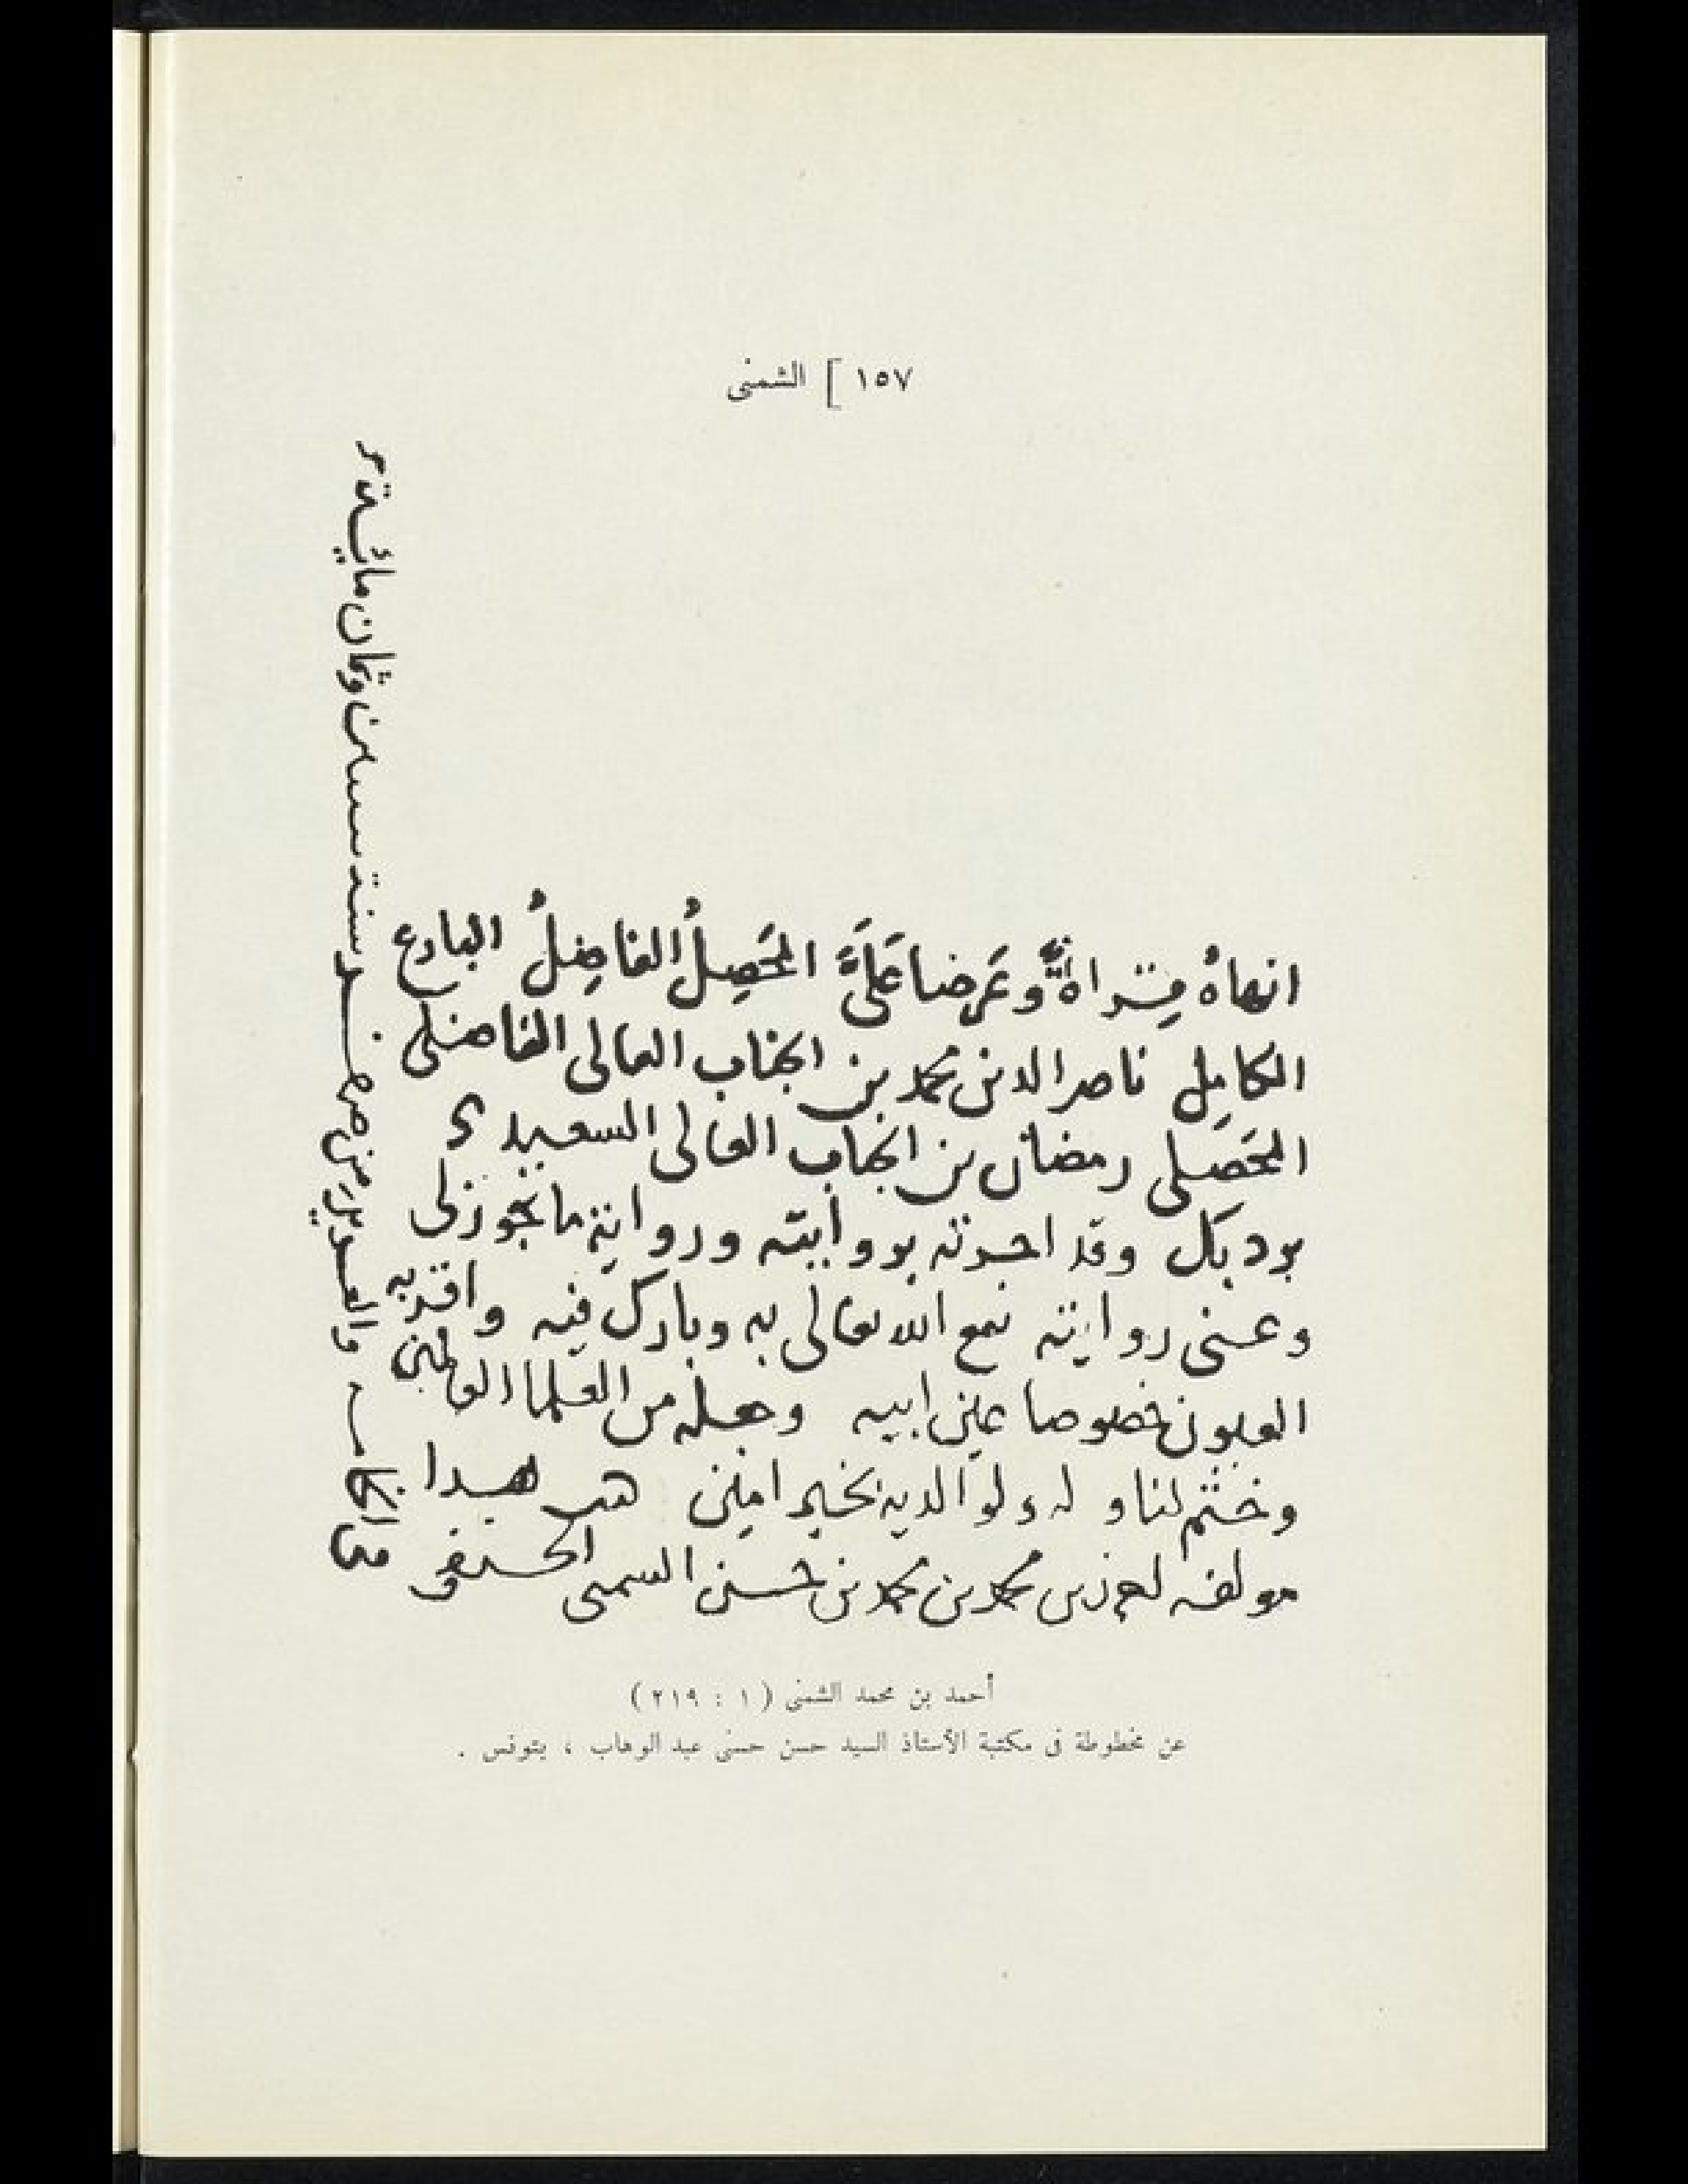 ١٥٧ ] الشمنى
انهاهُ قِراءةً وعَرضا عَلَيَّ المحَصِلُ الفاضِلُ البارع
الكامِل ناصر الدين محمد بن الجناب العالى الفاضلى
المحَصِلى رمضان بن الجناب العالى السعيدى
بردبك وقد اجزته بروايته ورواية ما يجوز لى
وعنى روايته نفع الله تعالى به وبارك فيه واقر به
العيون خصوصا عين ابيه وجعله من العلما العاملين
وختم لنا وله ولوالديه بخير امين كتب هذا
مولفه احمد بن محمد بن محمد بن حسن الشمنى الحنفى
فى الخامس والعشرين من صفر سنة ستين وثمان مائية
أحمد بن محمد الشمنى ( ١ : ٢١٩ )
عن مخطوطة فى مكتبة الأستاذ السيد حسن حسنى عبد الوهاب ، بتونس .